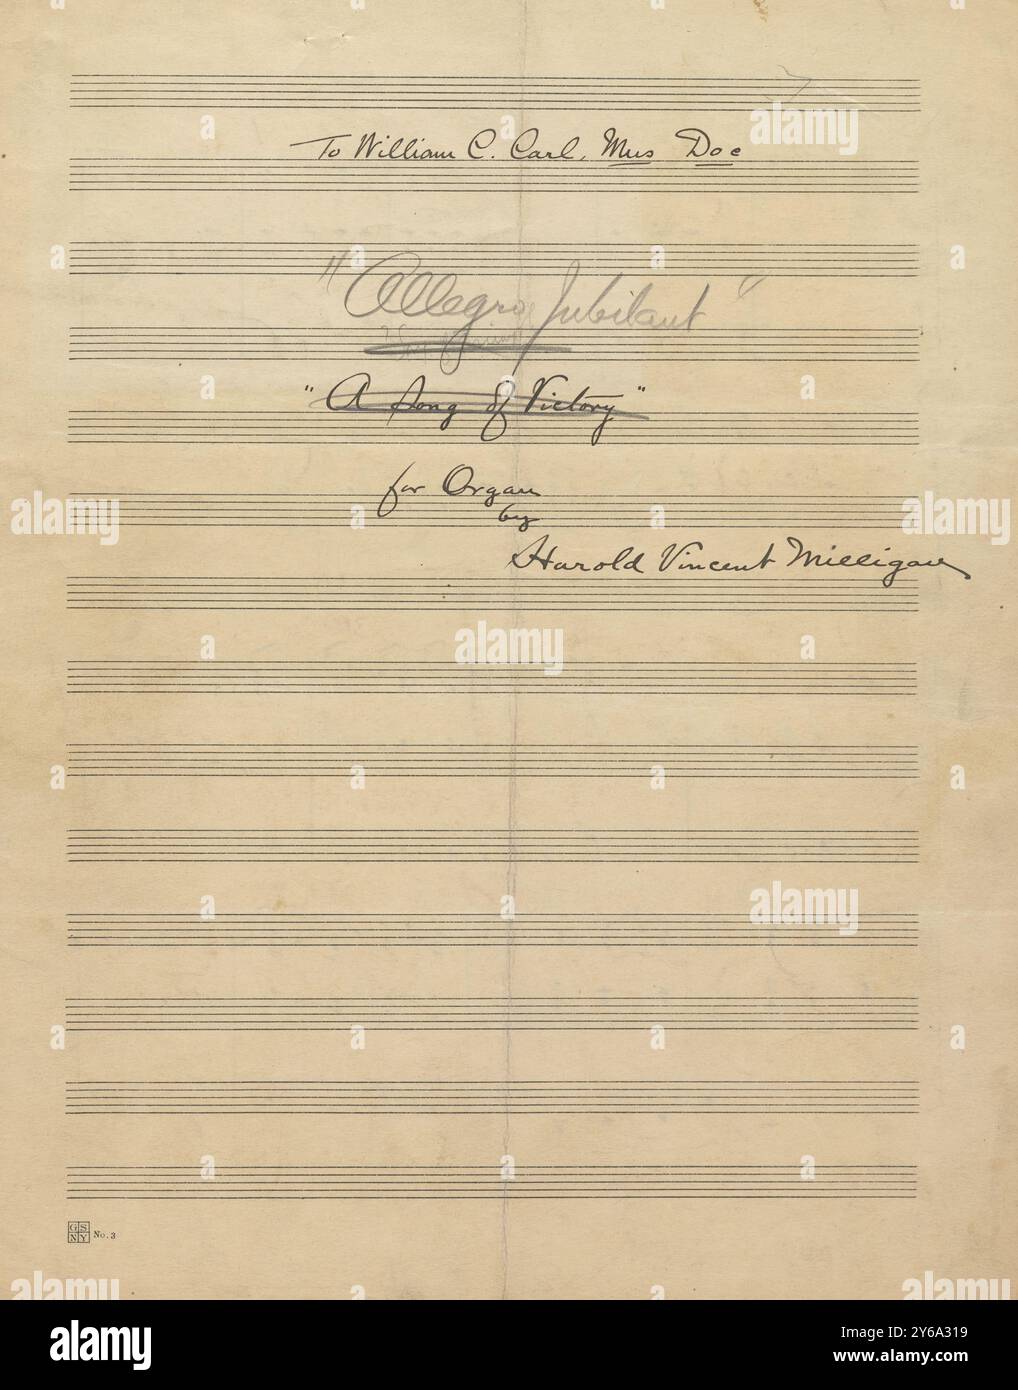 To William C. Carl, Mus Doc
"Allegro Jubilant"
"A Song of Victory"
for Organ
by
Harold Vincent Milligan
GS
NY No. 3
alamy
Image ID: 2Y6A319
www.alamy.com